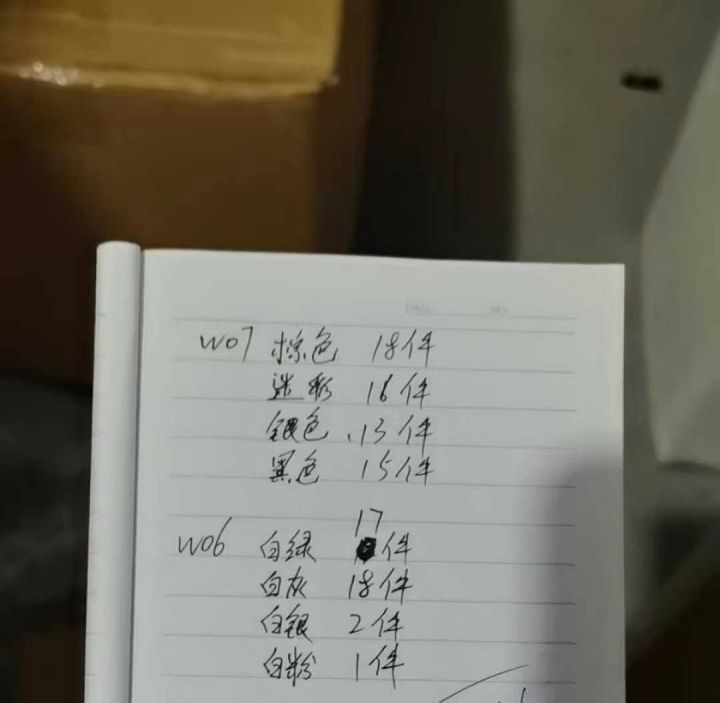 W07 棕色 18件
迷彩 16件
银色 13件
黑色 15件
17
W06 白绿 件
白灰 18件
白银 2件
白粉 1件